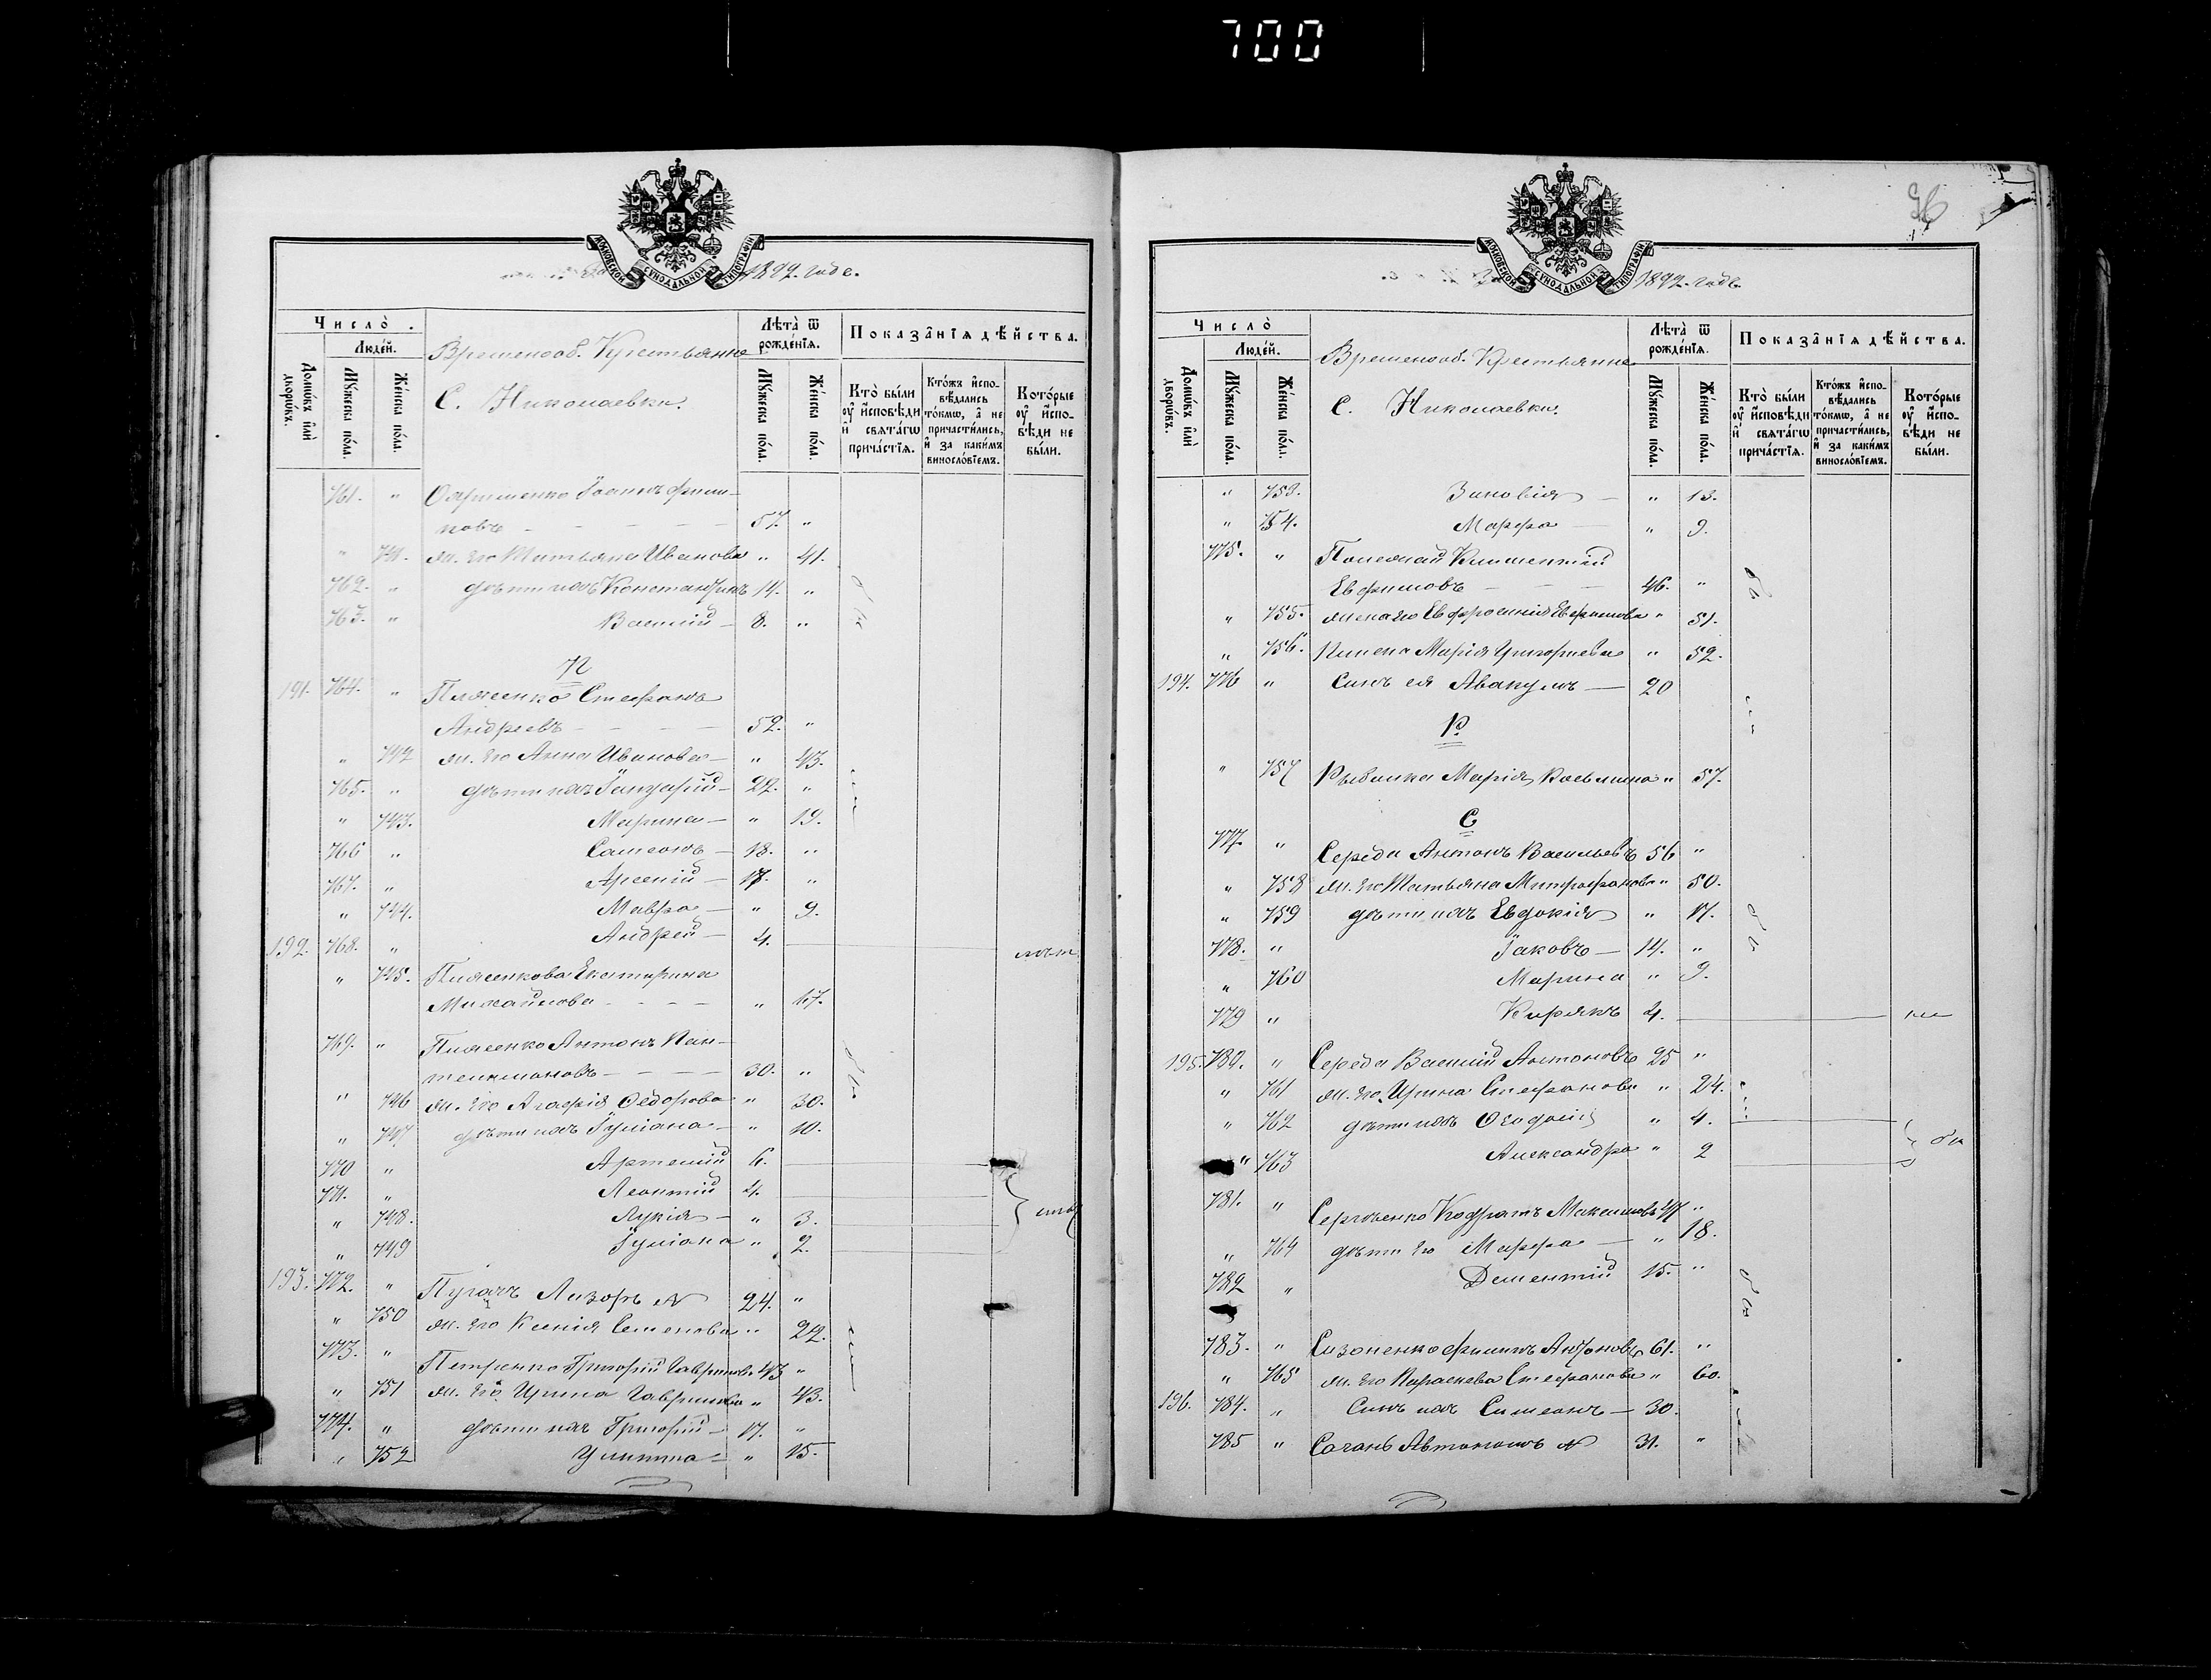 700
МОСКОВСКОЙ СѴНОДАЛЬНОЙ ТИПОГРАФІИ
1892. годе.
Число̀.
Люде́й.
Домѡ́въ и҆лѝ дворѡ́въ.
Мꙋ́жеска по́ла.
Же́нска по́ла.
Временооб. Крестьянне
С. Николаевки.
Лѣта̀ ѿ рожде́нїѧ.
Мꙋ́жеска по́ла.
Же́нска по́ла.
Показа̑нїѧ дѣ́йства.
Кто̀ бы́ли оу҆ и҆сповѣ́ди и҆ свѧта́гѡ прича́стїѧ.
Кто́жъ и҆сповѣ́дались то́кмѡ, а҆ не причасти́лись, и҆ за каки́мъ винословїемъ.
Кото́рые оу҆ и҆сповѣ́ди не бы́ли.
761. " Охрименко Іоаннъ Фили-
повъ - - - - 57. "
" 741. ж. его Татьяна Иванова " 41.
762. " дѣти ихъ Константинъ 14. "
763. " Василій - 8. "
П
191. 764. " Плясенко Стефанъ
Андреевъ - - - 52. "
" 742 ж. его Анна Иванова - " 43.
765. " дѣти ихъ Іануарій - 22. "
" 743. Марина - " 19.
766 " Самсонъ - 18. "
767. " Арсеній - 17. "
" 744. Мавра - " 9.
192. 768. " Андрей - 4.
" 745. Плясенкова Екатерина
Михайлова - - - " 17.
769. " Плясенко Антонъ Пан-
телимоновъ - - - 30. "
" 746 ж. его Агафія Ѳедорова " 30.
" 747 дѣти ихъ Іуліана - " 10.
770 " Артемій 6.
771. " Леонтій 4.
" 748. Лукія - " 3.
" 749 Іуліана " 2.
193. 772. " Пугачъ Лазорь N 24. "
" 750 ж. его Ксенія Семенова " 22.
773. " Петренко Григорій Гавриловъ 43 "
" 751 ж. его Ирина Гаврилова " 43.
774. " дѣти ихъ Григорій - 17. "
" 752 Улитта - " 15.
96
МОСКОВСКОЙ СѴНОДАЛЬНОЙ ТИПОГРАФІИ
1892. годе
Число̀
Люде́й.
Домѡ́въ и҆лѝ дворѡ́въ.
Мꙋ́жеска по́ла.
Же́нска по́ла.
Временооб. Крестьянне
С. Николаевки.
Лѣта̀ ѿ рожде́нїѧ.
Мꙋ́жеска по́ла.
Же́нска по́ла.
Показа̑нїѧ дѣ́йства.
Кто̀ бы́ли оу҆ и҆сповѣ́ди и҆ свѧта́гѡ прича́стїѧ.
Кто́жъ и҆сповѣ́дались то́кмѡ, а҆ не причасти́лись, и҆ за каки́мъ винословїемъ.
Кото́рые оу҆ и҆сповѣ́ди не бы́ли.
" 753. Зиновія - " 13.
" 754. Марфа - " 9.
775. " Климентій
Евфимовъ - - - 46. "
" 755. жена его Евфросинія Евфимова " 51.
" 756. Марія Григорьева " 52.
194. 776 " Сынъ ея Авакумъ - 20
Р
" 757 Рыбалка Марія Косьмина " 57.
С
777. " Середа Антонъ Васильевъ 56 "
" 758 ж. его Татьяна Митрофанова " 50.
" 759 дѣти ихъ Евдокія " 17.
778. " Іаковъ - 14. "
" 760 Марина " 9.
779 " Кирякъ 4.
195. 780. " Середа Василій Антоновъ 25 "
" 761 ж. его Ирина Стефанова " 24.
" 762 дѣти ихъ Ѳеодосія " 4.
" 763 Александра " 2
781. " Сергѣенко Кодратъ Максимовъ 47 "
" 764 дѣти его Марфа - " 18.
782 " Дементій 15. "
783. " Сизоненко Филипъ Андроновъ 61. "
" 765 ж. его Параскева Стефанова " 60.
196. 784. " Сынъ ихъ Симеонъ - 30.
785 " Саганъ Автономъ N 31. "